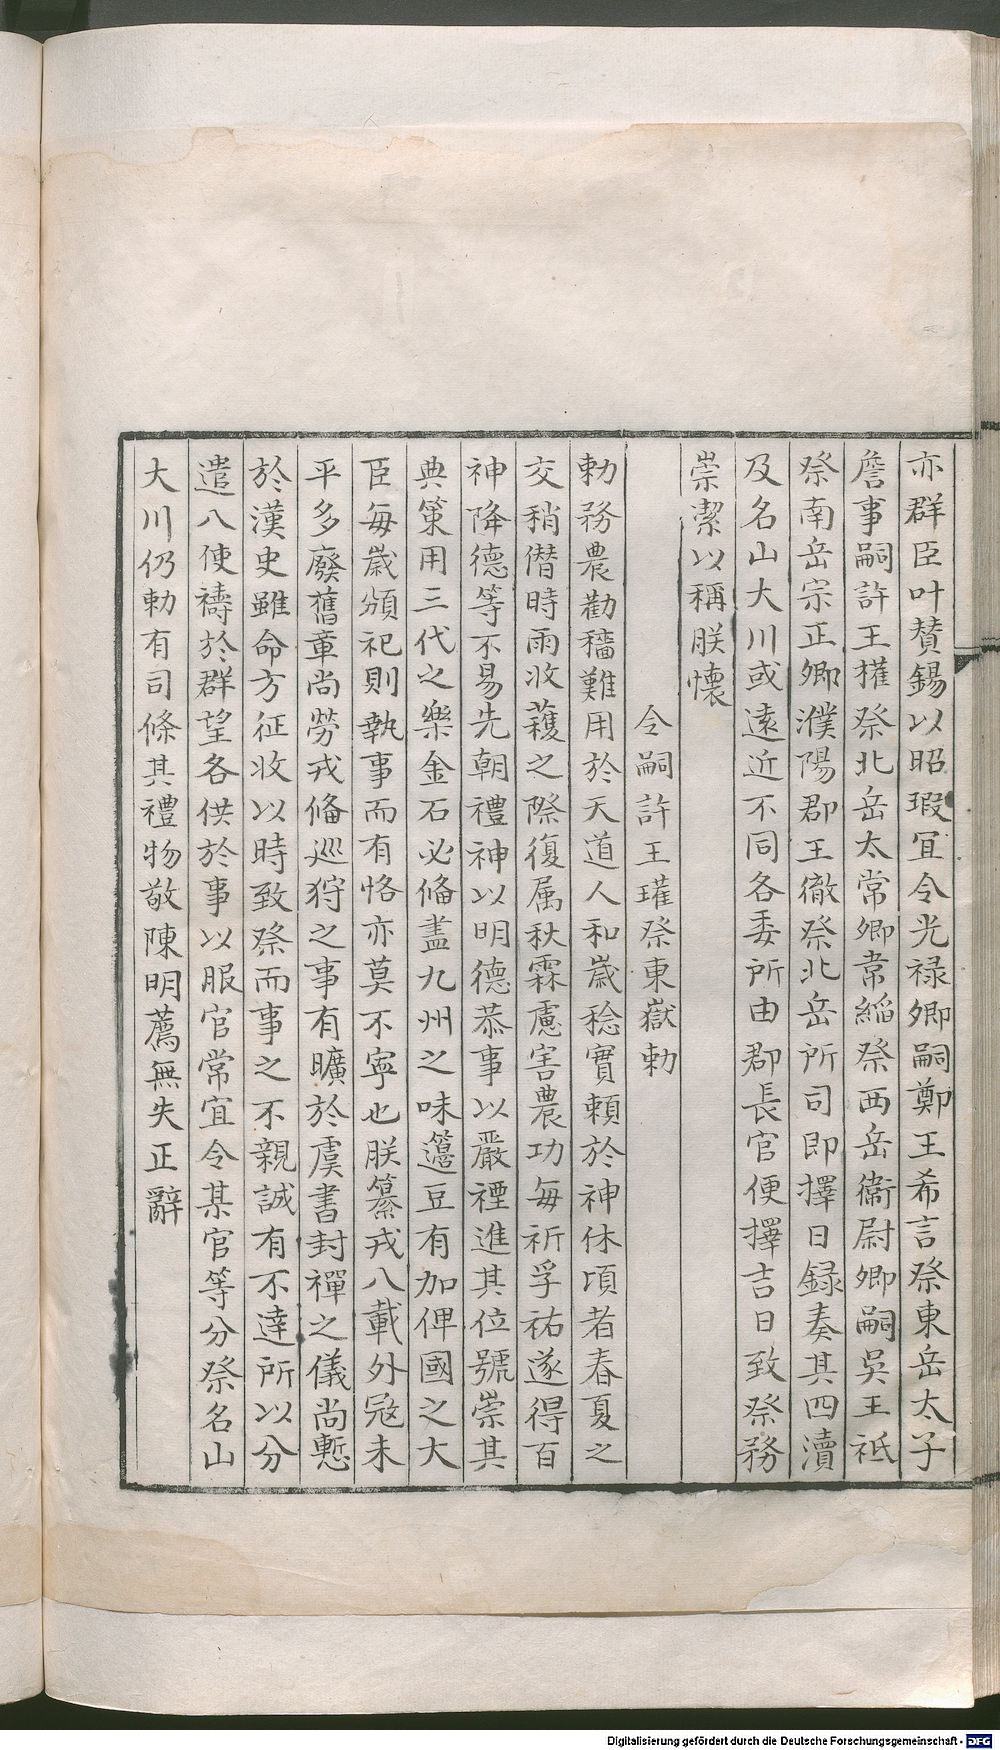 亦群臣叶賛錫以昭瑕宜令光禄卿嗣鄭王希言祭東岳太子
詹事嗣許王㩲祭北岳太常卿韋縚祭西岳衞尉卿嗣吳王祗
祭南岳宗正卿濮陽郡王徹祭北岳所司即擇日録奏其四瀆
及名山大川或遠近不同各委所由郡長官便擇吉日致祭務
崇潔以稱朕懷
令嗣許王瓘祭東嶽勅
勅務農勸穡難用於天道人和歲稔實頼於神休頃者春夏之
交稍僣時雨收䕶之際復属秋霖慮害農功每祈孚祐遂得百
神降德等不易先朝禮神以明德恭事以嚴禋進其位號崇其
典策用三代之樂金石必俻盡九州之味籩豆有加俾國之大
臣每歲頒祀則執事而有恪亦莫不寧也朕纂戎八載外冦未
平多廢舊章尚勞戎俻巡狩之事有曠於虞書封禪之儀尚慙
於漢史雖命方征收以時致祭而事之不親誠有不逹所以分
遣八使禱於群望各供於事以服官常宜令某官等分祭名山
大川仍勅有司條其禮物敬陳明薦無失正辭
Digitalisierung gefördert durch die Deutsche Forschungsgemeinschaft - DFG